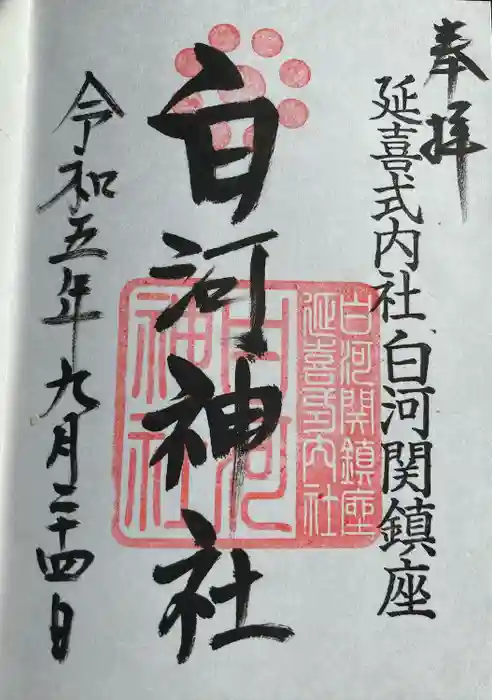 奉拝
延喜式内社 白河関鎮座
白河神社
白河関鎮座
延喜式内社
白河
神社
令和五年九月二十四日